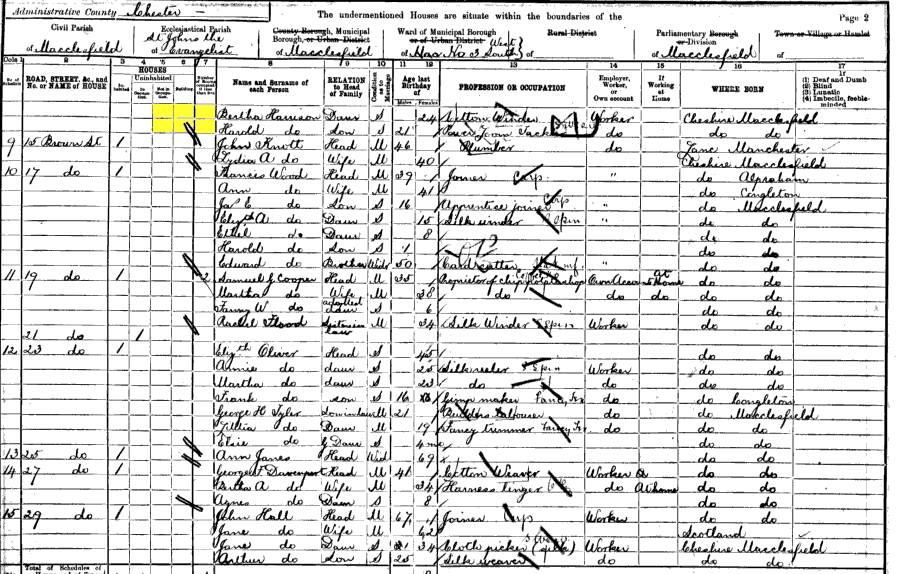 Administrative County Chester
The undermentioned Houses are situate within the boundaries of the
Page 2
Civil Parish
of Macclesfield
Ecclesiastical Parish
St Johns the
of Evangelist
County Borough, Municipal
Borough, or Urban District
of Macclesfield
Ward of Municipal Borough
or of Urban District (West)
of No 3 South
Rural District
of
Parliamentary Borough
or Division
of Macclesfield
Town or Village or Hamlet
of
Cols 1 2 3 4 5 6 7 8 9 10 11 12 13 14 15 16 17
No. of Schedule
ROAD, STREET, &c., and No. or NAME of HOUSE
HOUSES
Inhabited
Uninhabited
In Occupation
Not in Occupation
Building
Name and Surname of each Person
RELATION to Head of Family
Condition as to Marriage
Age last Birthday of
Males
Females
PROFESSION OR OCCUPATION
Employer, Worker, or Own account
If Working at Home
WHERE BORN
If
(1) Deaf and Dumb
(2) Blind
(3) Lunatic
(4) Imbecile, feeble-minded
Bertha Harrison Daur S 24 Cotton Winder Worker Cheshire Macclesfield
Harold do Son S 21 Power Loom do do do
9 15 Brown St 1 John Knott Head M 46 Plumber do Lanc Manchester
Lydia A do Wife M 40 Cheshire Macclesfield
10 17 do 1 Francis Wood Head M 39 Joiner Carp " do
Ann do Wife M 41 do Congleton
Jas E do Son S 16 Apprentice joiner Carp " do Macclesfield
Elizth A do Daur S 15 Silk winder Spin " do do
Ethel do Daur S 8 do do
Harold do Son S 1 do do
Edward do Brother Widr 50 Card cutter " do do
11 19 do 1 2 Samuel J Cooper Head M 35 Proprietor of chip Own Account at Home do do
Martha do Wife M 38 do do do do do
Fanny W do adopted daur S 6 do do
Rachel Flood Sister in law M 34 Silk Winder Spin Worker do do
21 do 1
12 23 do 1 Elizth Oliver Head S 45 do do
Annie do daur S 25 Silk reeler Spin Worker do do
Martha do daur S 23 do do do do
Frank do son S 16 Gimp maker do do Congleton
George H Tyler Son in law M 21 Builders Labourer do do Macclesfield
Lillia do Daur M 19 Fancy trimmer do do do
Elsie do G Daur S 4 mo do do
13 25 do 1 Ann Janes Head Wid 69 do do
14 27 do 1 George F Davenport Head M 41 Cotton Weaver Worker do do
Bertha A do Wife M 34 Harness do At home do do
Agnes do Daur S 8 do do
15 29 do 1 John Hall Head M 67 Joiner Carp Worker do do
Jane do Wife M 62 Scotland
Jane do Daur S 34 Cloth picker (silk) Worker Cheshire Macclesfield
Arthur do Son S 25 Silk weaver do do do
Total of Schedules of